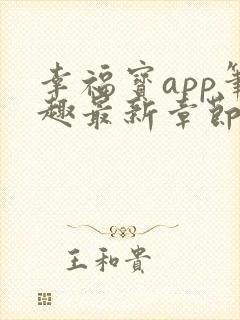 幸福宝app笔
趣最新章節
王和貴